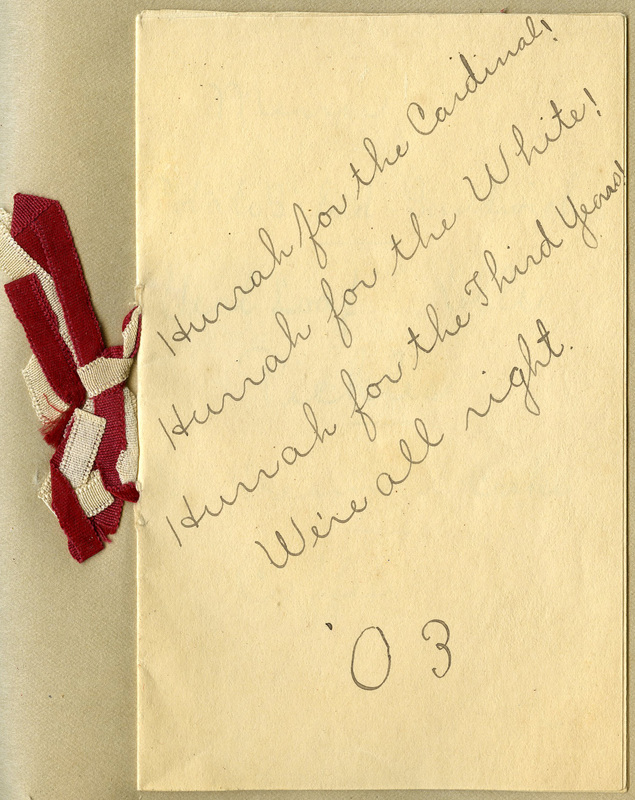 Hurrah for the Cardinal!
Hurrah for the White!
Hurrah for the Third Years!
We're all right.
'03